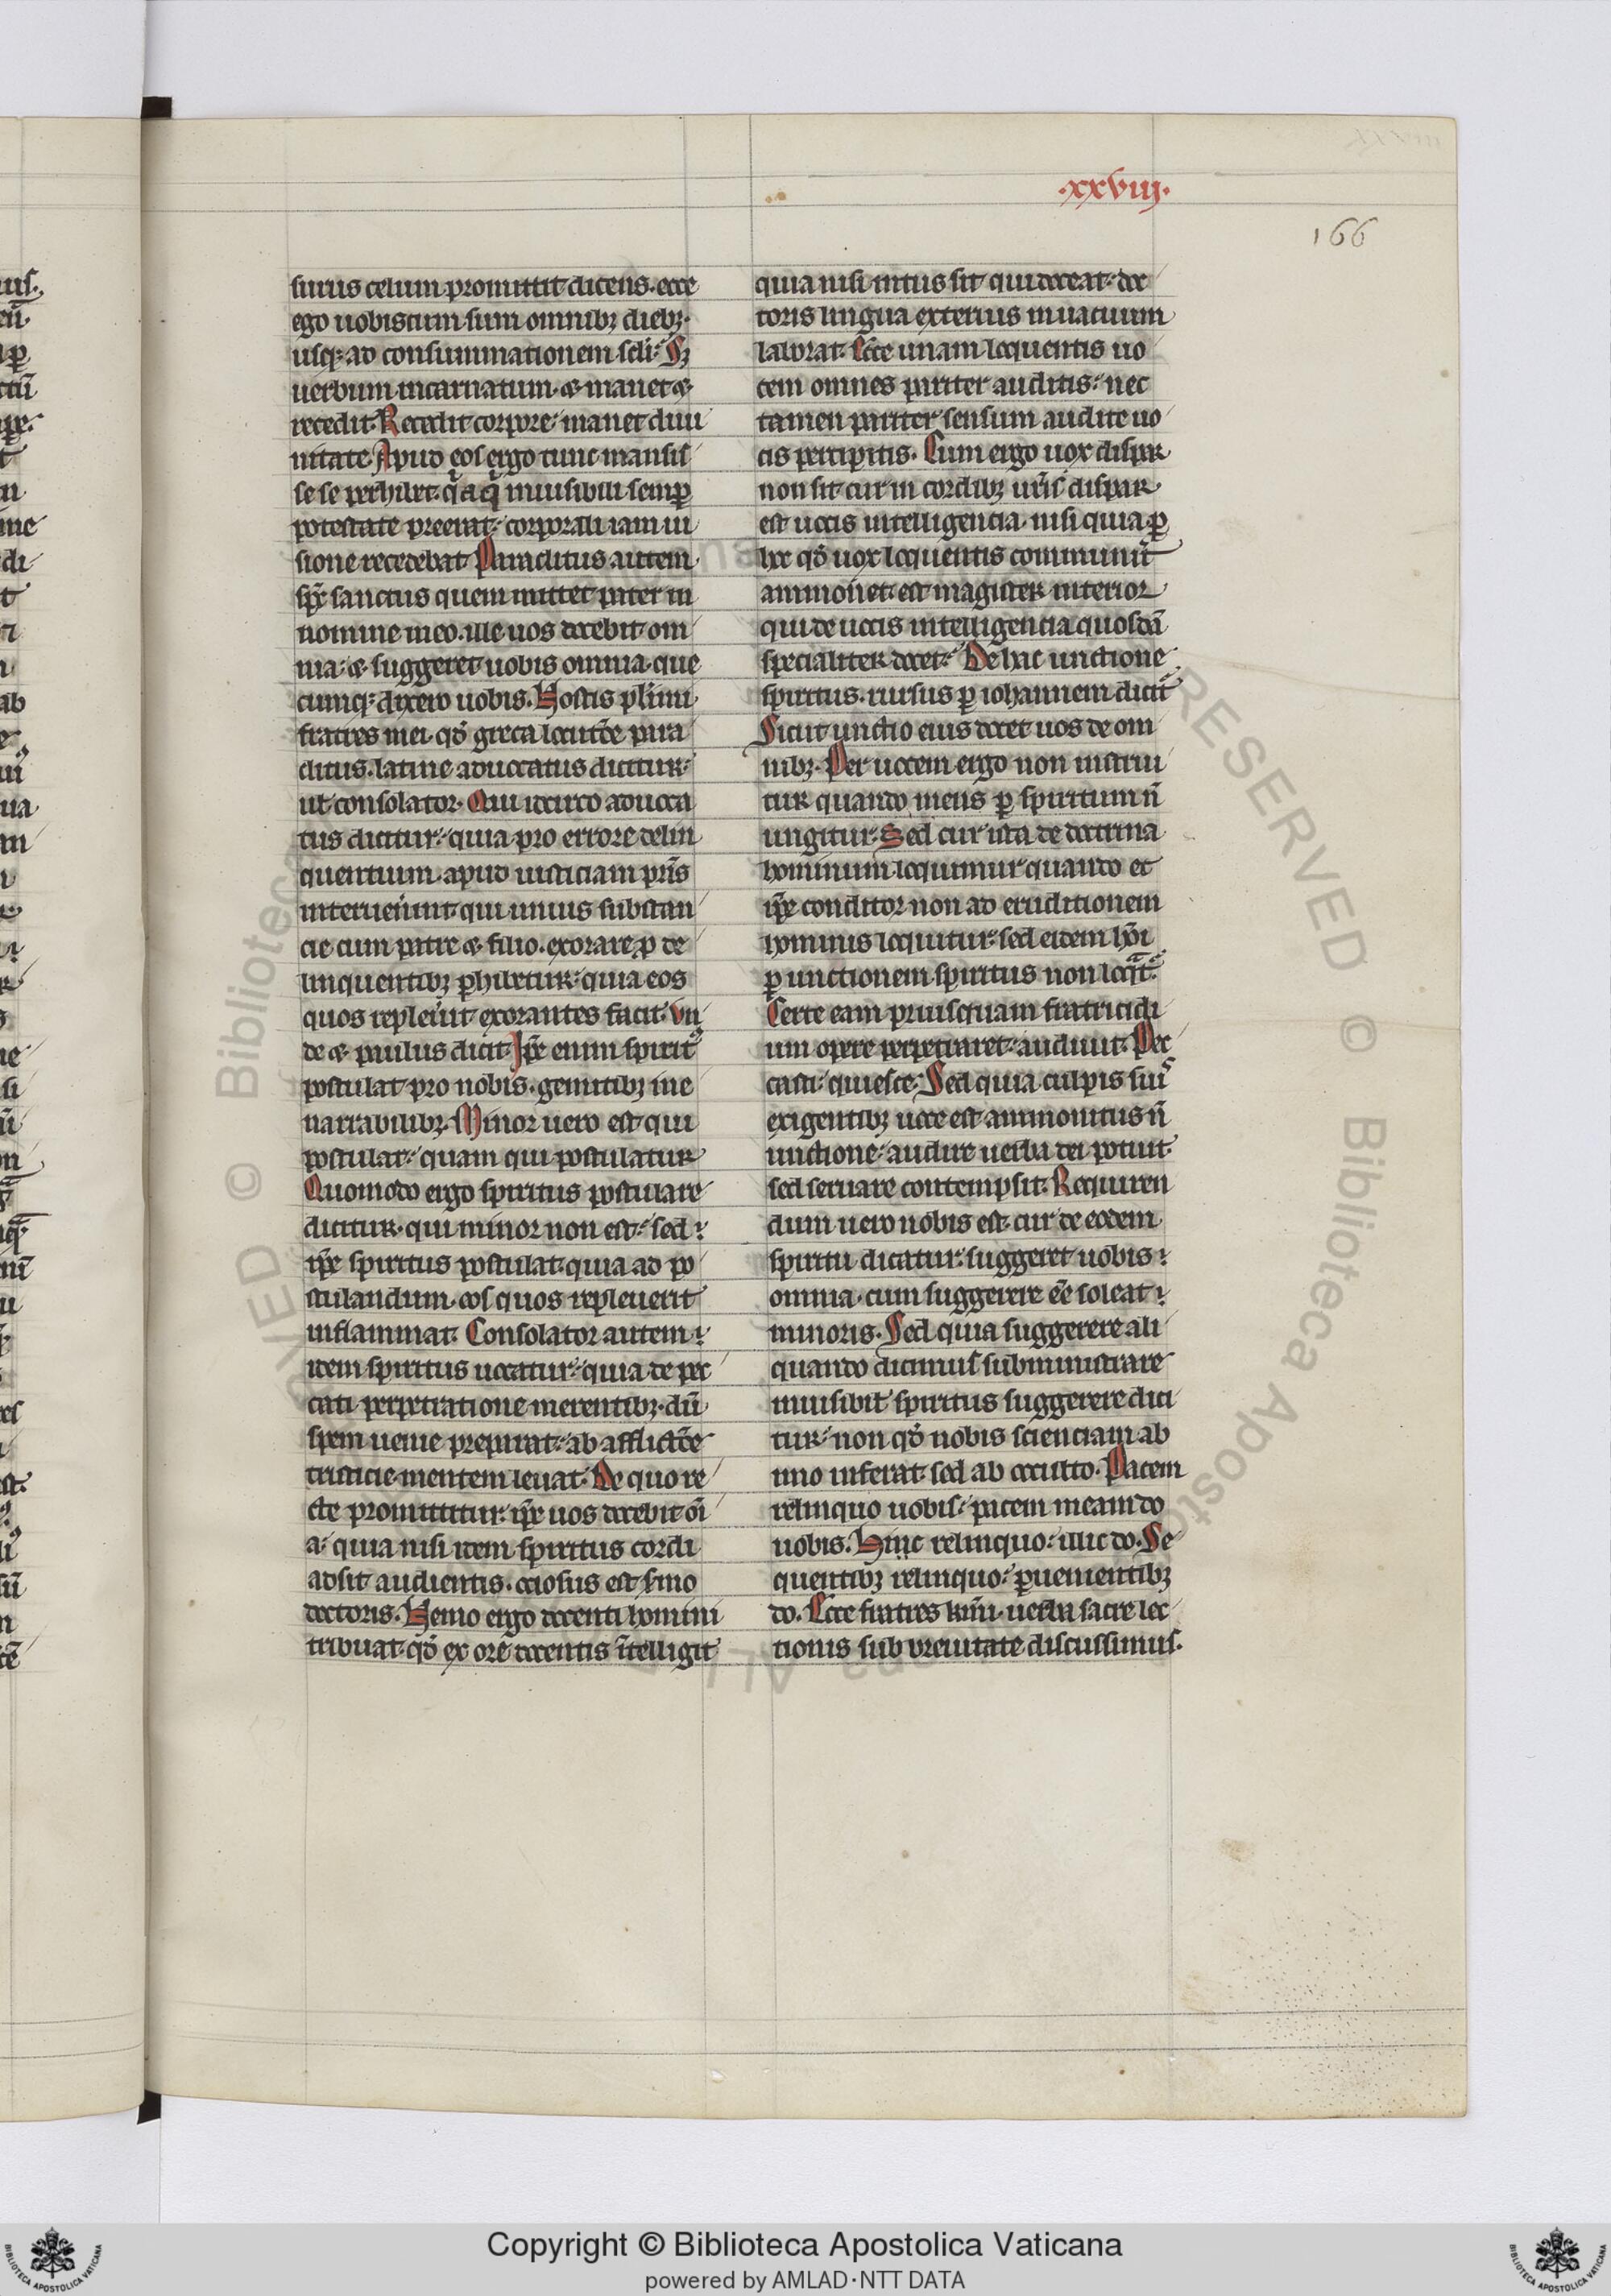 .xxviij.
166
surus celum promittit dicens. ecce
ego uobiscum sum omnibꝫ diebꝫ.
usqꝫ ad consummationem scłi. Sꝫ
uerbum incarnatum. & manet &
recedit. Recedit corpore. manet diui
nitate. Apud eos ergo tunc mansis
se se perhibet. q̄a q̇ inuisibili semꝑ
potestate preerat. corporali iam ui
sione recedebat. Paraclitus autem
sp̄s sanctus quem mittet pater in
nomine meo. ille uos docebit om
nia. & suggeret uobis omnia. que
cumqꝫ dixero uobis. Nostis plurimi
fratres mei. qđ greca locutōe para
clitus. latine aduocatus dicitur.
ut consolator. Qui idcirco aduoca
tus dicitur. quia pro errore delin
quentium. apud iusticiam pr̄is
interuenit. qui unius substan
cie cum patre & filio. exorare ꝓ de
linquentibꝫ ꝑhibetur. quia eos
quos repleuit exorantes facit. Vn
de & paulus dicit. Ip̄e enim spirit᾽
postulat pro nobis. gemitibꝫ ine
narrabilibꝫ. Minor uero est qui
postulat. quam qui postulatur
Quomodo ergo spiritus postulare
dicitur. qui minor non est. sed
ip̄e spiritus postulat. quia ad po
stulandum. eos quos repleuerit
inflammat. Consolator autem
idem spiritus uocatur. quia de pec
cati perpetratione merentibꝫ. dū
spem uenie preparat. ab afflictōe
tristicie mentem leuat. De quo re
cte promittitur. ip̄e uos docebit oī
a. quia nisi idem spiritus cordi
adsit audientis. ociosus est s̄mo
doctoris. Nemo ergo docenti homini
tribuat. qđ ex ore docentis ītelligit
quia nisi intus sit qui doceat. doc
toris lingua exterius in uacuum
laborat. Ecce unam loquentis uo
cem omnes pariter auditis. nec
tamen pariter sensum audite uo
cis percipitis. Cum ergo uox dispar
non sit. cur in cordibꝫ ur̄is dispar
est uocis intelligencia. nisi quia ꝑ
hoc qđ uox loquentis communit̄
ammonet. est magister interior
qui de uocis intelligencia quosdā
specialiter docet. De hac unctione
spiritus. rursus ꝑ iohannem dicit᾽
Sicut unctio eius docet uos de om
nibꝫ. Per uocem ergo non instrui
tur quando mens ꝑ spiritum n̄
ungitur. Sed cur ista de doctrina
hominum loquimur quando et
ip̄e conditor non ad eruditionem
hominis loquitur. sed eidem hōi
ꝑ unctionem spiritus non loq̄t᾽.
Certe eam priusquam fratricidi
um opere perpetraret. audiuit. Pec
casti. quiesce. Sed quia culpis suis
exigentibꝫ uoce est ammonitus n̄
unctione. audire uerba dei potuit.
sed seruare contempsit. Requiren
dum uero nobis est. cur de eodem
spiritu dicatur. suggeret uobis
omnia. cum suggerere eē soleat
minoris. Sed quia suggerere ali
quando dicimus subministrare
inuisibił spiritus suggerere dici
tur. non qđ nobis scienciam ab
imo inferat. sed ab occulto. Pacem
relinquo uobis. pacem meam do
uobis. Hinc relinquo. illic do. Se
quentibꝫ relinquo. ꝑuenientibꝫ
do. Ecce fratres kr̄mi. uerba sacre lec
tionis sub breuitate discussimus.
Copyright © Biblioteca Apostolica Vaticana
powered by AMLAD·NTT DATA